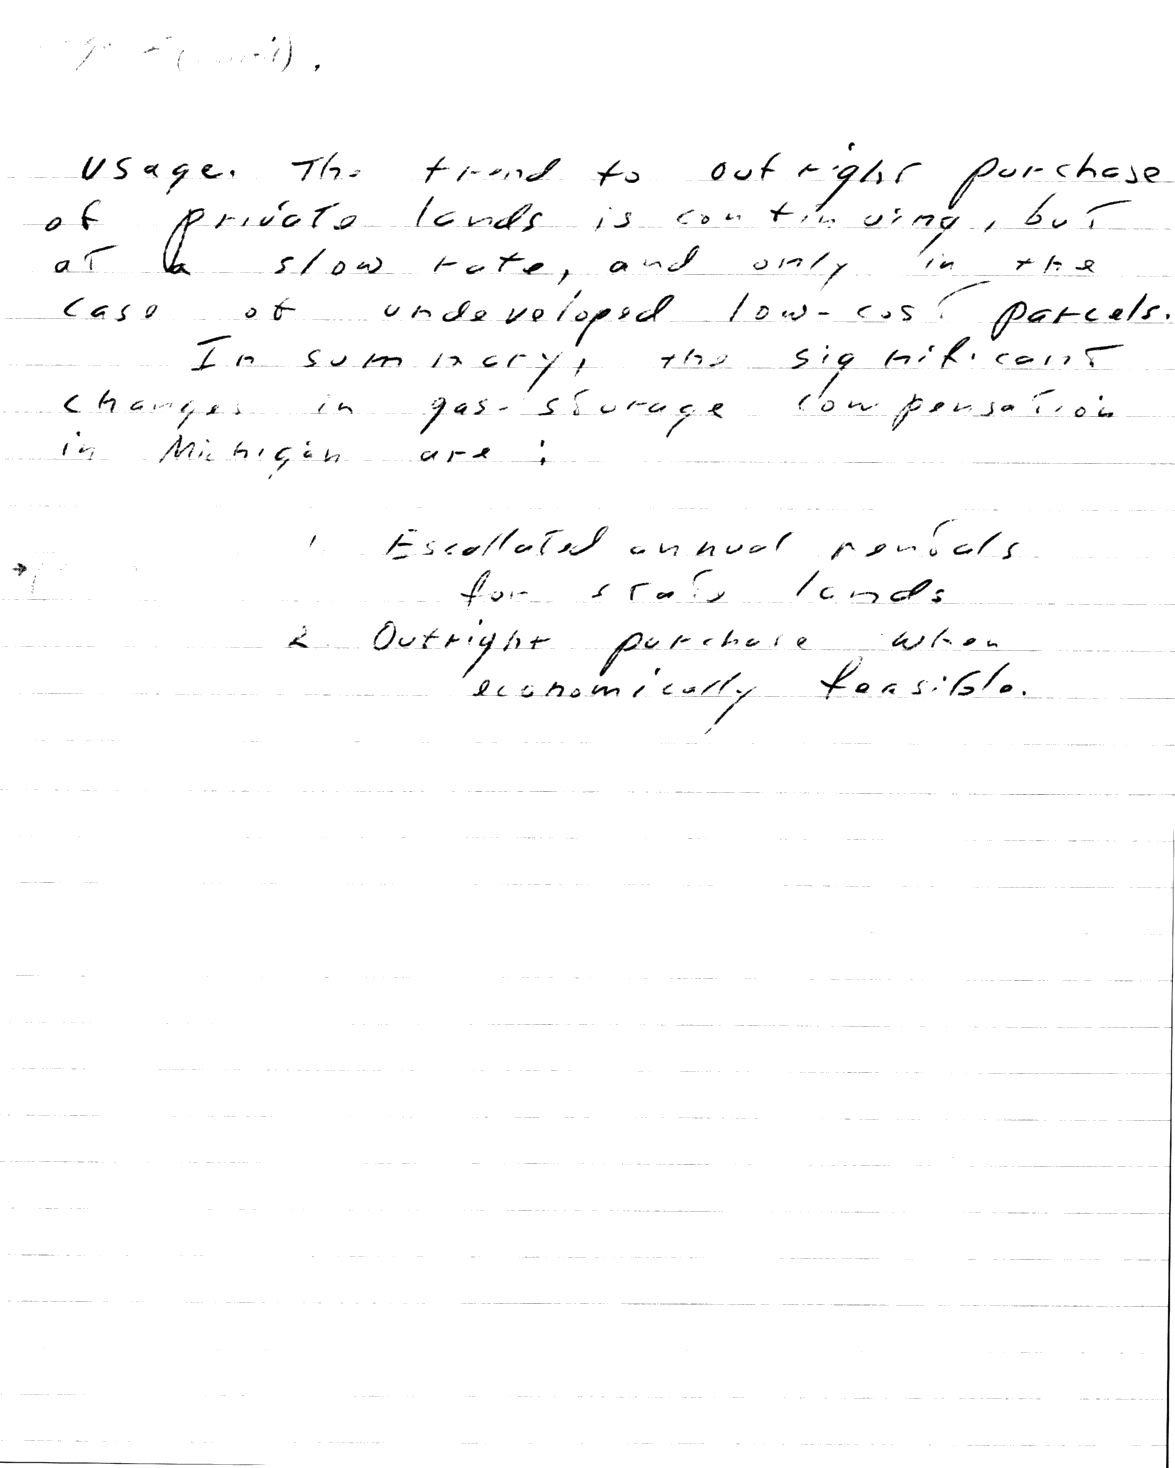 usage. The trend to outright purchase
of private lands is continuing, but
at a slow rate, and only in the
case of undeveloped low-cost parcels.
In summary, the significant
changes in gas-storage compensation
in Michigan are:
1. Escallated annual rentals
for state lands
2. Outright purchase when
economically feasible.